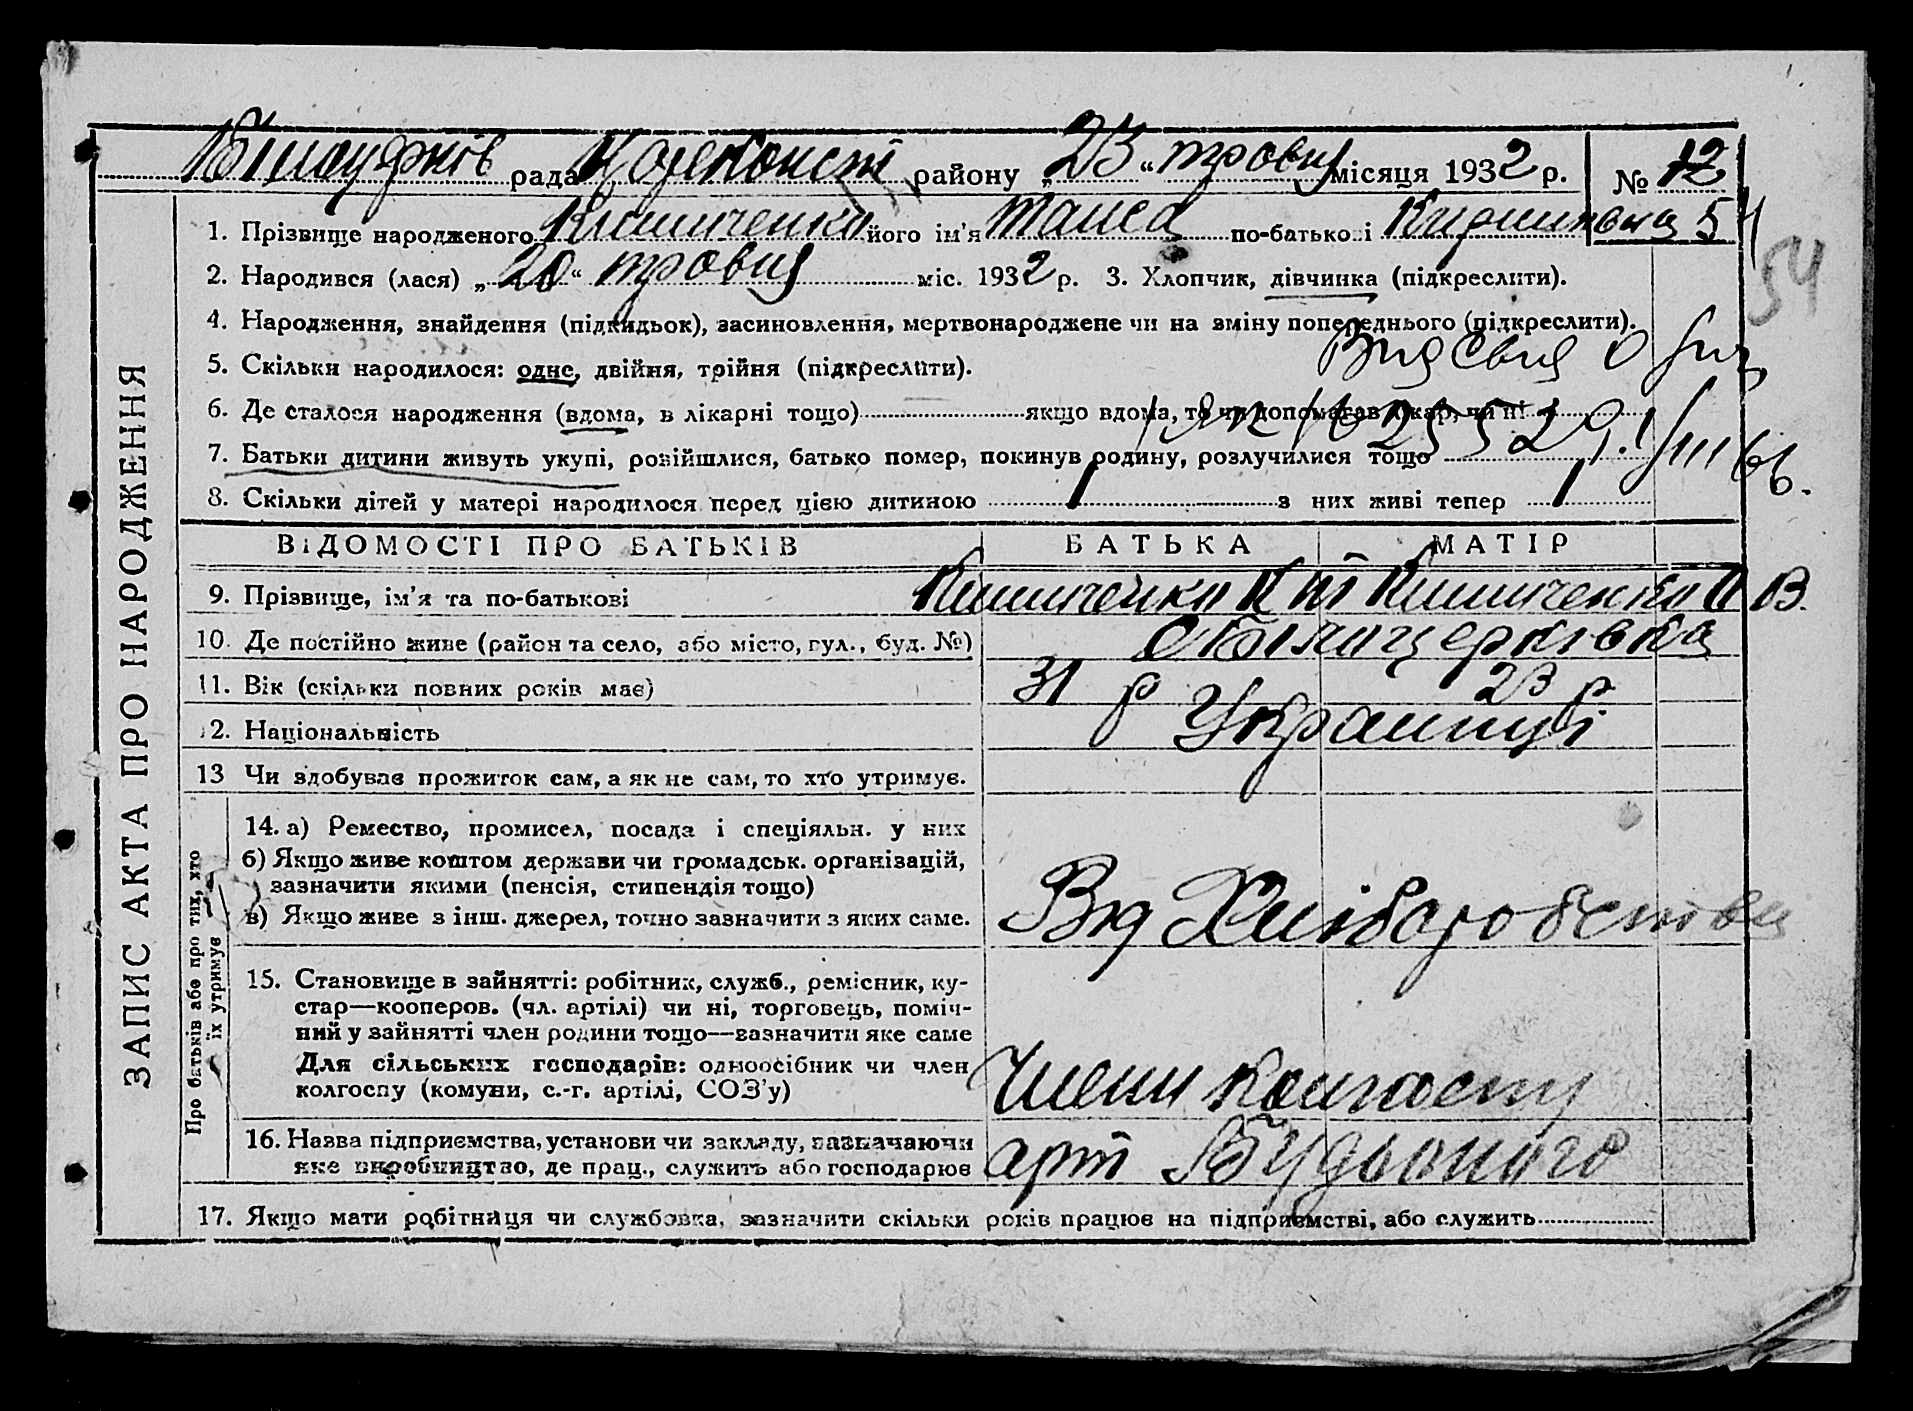 ЗАПИС АКТА ПРО НАРОДЖЕННЯ
рада району „23“ травня місяця 1932 р. № 12
1. Прізвище народженого його ім'я Таиса по-батькові 54
54
2. Народився (лася) „20“ травня міс. 1932 р. 3. Хлопчик, дівчинка (підкреслити).
4. Народження, знайдення (підкидьок), засиновлення, мертвонароджене чи на зміну попереднього (підкреслити).
5. Скільки народилося: одне, двійня, трійня (підкреслити).
6. Де сталося народження (вдома, в лікарні тощо) якщо вдома, то чи допомагав лікар, чи ні
7. Батьки дитини живуть укупі, розійшлися, батько помер, покинув родину, розлучилися тощо
8. Скільки дітей у матері народилося перед цією дитиною 1 з них живі тепер 1
ВІДОМОСТІ ПРО БАТЬКІВ БАТЬКА МАТІР
9. Прізвище, ім'я та по-батькові
10. Де постійно живе (район та село, або місто, вул., буд. №) с Білоцерківка
11. Вік (скільки повних років має) 31 р 23 р.
12. Національність Украинці
13 Чи здобував прожиток сам, а як не сам, то хто утримує.
Про батьків або про тих, хто їх утримує
14. а) Ремество, промисел, посада і спеціяльн. у них
б) Якщо живе коштом держави чи громадськ. організацій,
зазначити якими (пенсія, стипендія тощо)
в) Якщо живе з інш. джерел, точно зазначити з яких саме. Вид Хліборобства
15. Становище в зайнятті: робітник, служб., ремісник, ку-
стар—кооперов. (чл. артілі) чи ні, торговець, поміч-
ний у зайнятті член родини тощо—зазначити яке саме
Для сільських господарів: одноосібник чи член
колгоспу (комуни, с.-г. артілі, СОЗ'у) Члени колгоспу
16. Назва підприємства, установи чи закладу, зазначаючи
яке виробництво, де прац., служить або господарює арт Будьоного
17. Якщо мати робітниця чи службовка, зазначити скільки років працює на підприємстві, або служить